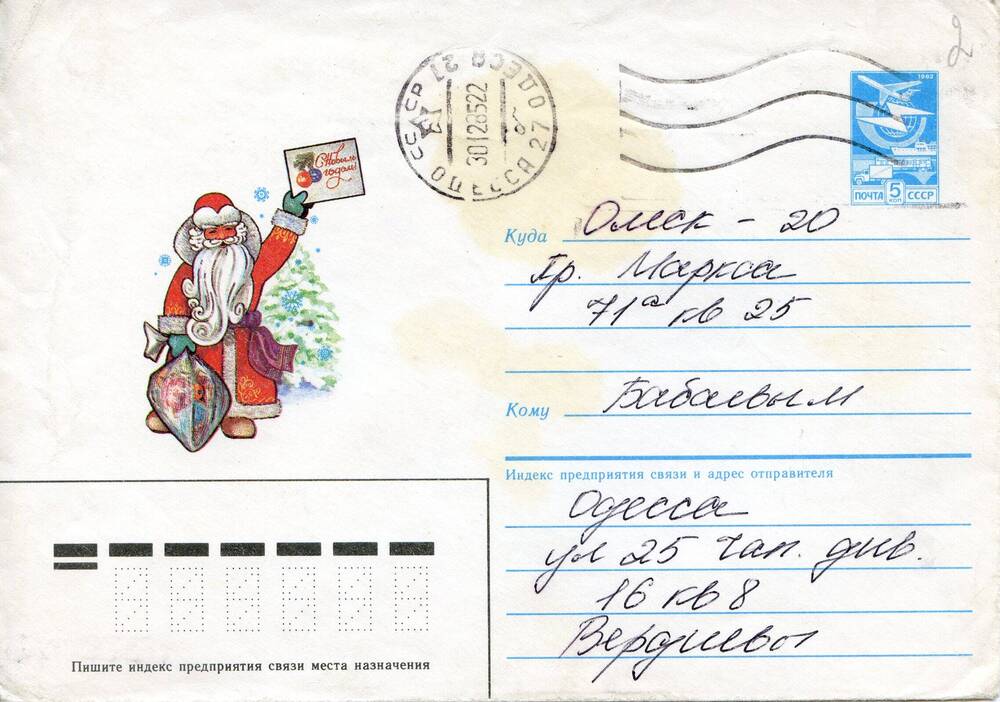 2
СССР ОДЕССА 27
ОДЕССА 27
30128522
1982
ПОЧТА 5 КОП СССР
С Новым
годом!
Куда Омск - 20
пр. Маркса
71а кв 25
Кому Бабаевым
Индекс предприятия связи и адрес отправителя
Одесса
ул 25 Чап. див.
16 кв 8
Пишите индекс предприятия связи места назначения